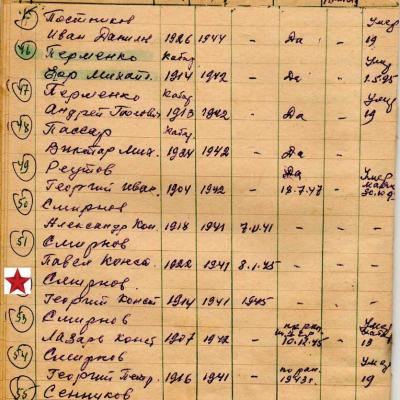 Постников Умер
Иван Данил 1926 1944 - Да - 19
46 Перменко Кавал Умер
Егор Михайл. 1914 1942 - Да - 1.5.45
47 Перменко Кавал Умер
Андрей 1913 1942 - Да - 19
48 Пассар Кавал
Виктор Мих. 1924 1942 - Да -
49 Реутов Да Умер
Георгий Иван. 1904 1942 - 18.7.47 -
50 Смирнов
Александр Кон. 1918 1941 - -
51 Смирнов
Павел Конст. 1922 1941 8.1.45 - -
Смирнов
Георгий Конст 1914 1941 1945 - -
53 Смирнов Умер
Лазарь Конст 1907 1942 - 10.12.45 - 19
54 Смирнов по ран. Умер
Георгий Петр. 1916 1941 - 1943г. - 19
55 Сенников